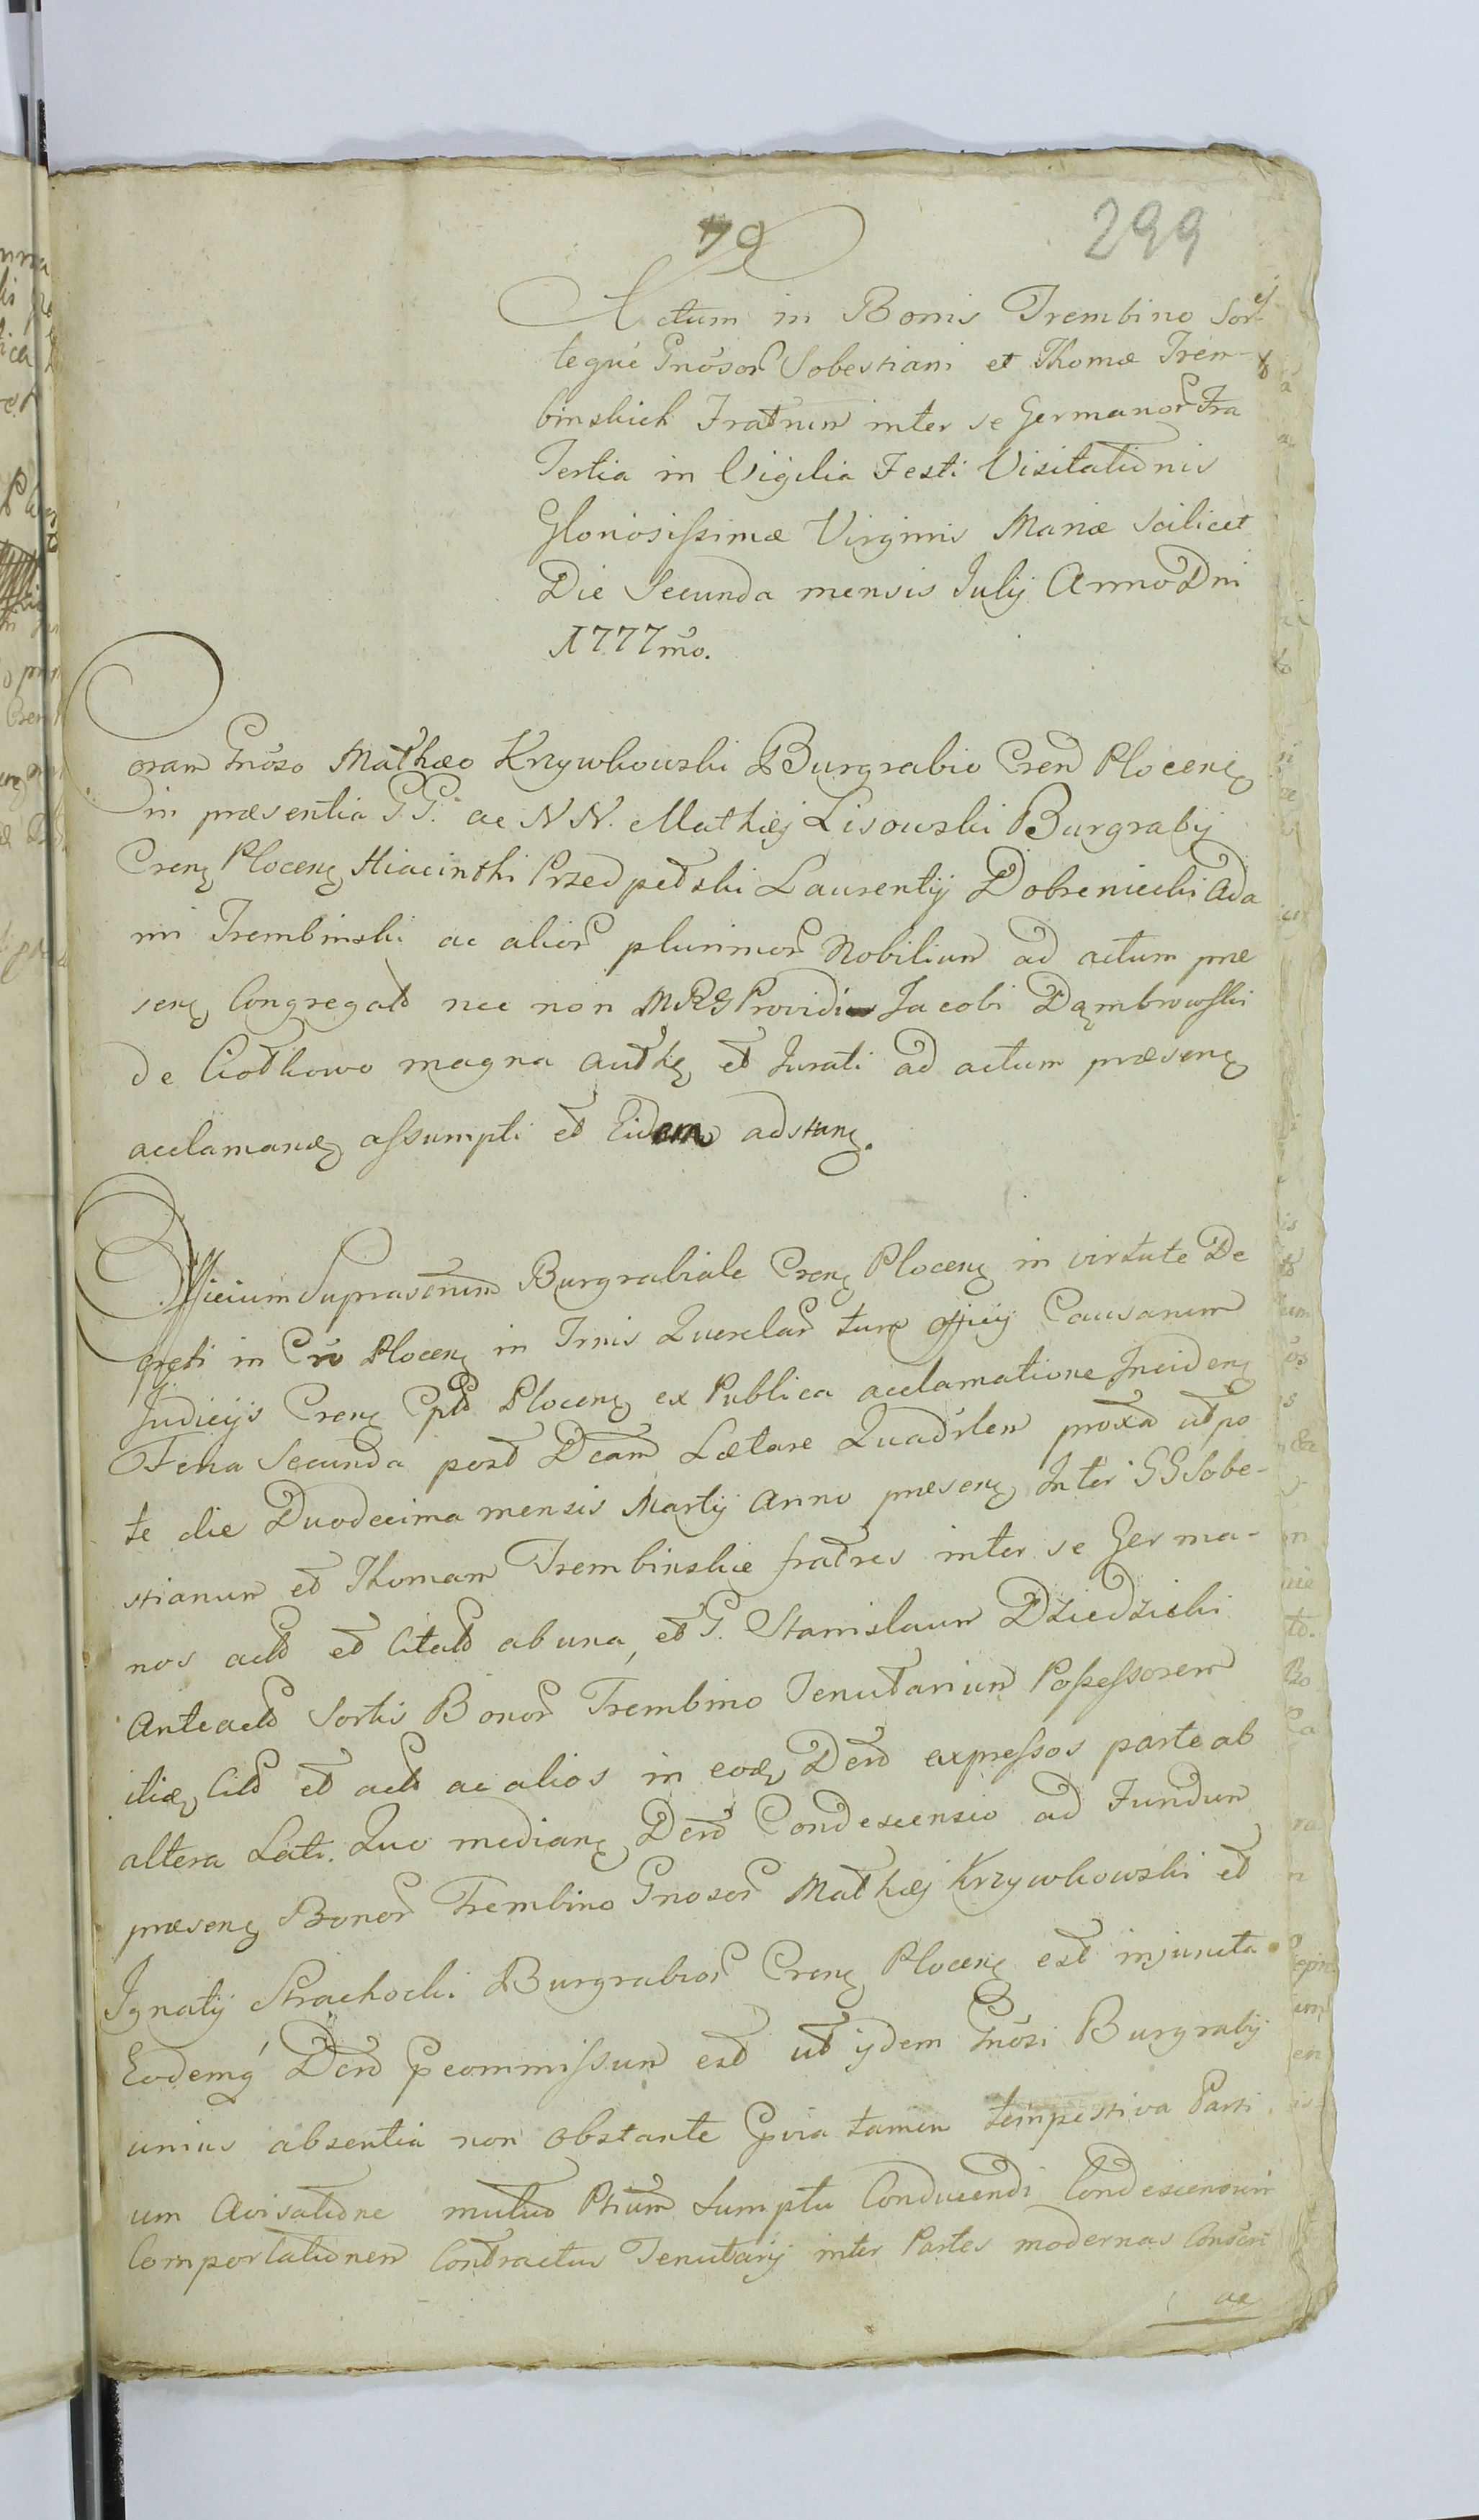 79
299
Actum in Bonis Trembino Sor
teque Gnosor Sobestiani et Thomæ Trem-
binskich Fratrum inter se Germanor Fra
Tertia in Vigilia Festi Visitationis
Gloriosissimæ Virginis Mariæ Scilicet
Die Secunda mensis Julij Anno Dni
1777mo.
Coram Gnoso Mathæo Krzywkowski Burgrabio Cren Plocen
in præsentia GG. ac NN. Mathæj Lisowski Burgrabij
Cren Plocen Hiacinthi Przedpełski Laurentij Dobreniechi Ada
mi Trembinski ac alior plurimor Nobilium ad actum præ
sen Congregat nec non MRG Providi Jacobi Dąmbrowski
de Ciołkowo magna autth et Jurati ad actum præsen
acclamand assumpti et Eidem adstan.
Officium Suprascrium Burgrabiale Cren Plocen in virtute De
creti in Cro Plocen in Trnis Querelar tum officij Causarum
Judicijs Cren Cpts Plocen ex Publica acclamatione Inciden
Feria Secunda post Dcam Lætare Quadrlem proxa utpo
te die Duodecima mensis Martij Anno præsen Inter GG Sobe-
stianum et Thomam Trembinskie fratres inter se Germa-
nos acts et Citats ab una, et G. Stanislaum Dziedzicki
Anteacts Sortis Bonor Trembino Tenutarium Possessorem
itid Cits et acts ac alios in eod Dero expressos parte ab
altera Lati. Quo median Dero Condescensio ad Fundum
præsen Bonor Trembino Gnosor Mathæj Krzywkowski et
Ignatij Strachocki Burgrabior Cren Plocen est injuncta
Eodemq Dero commissum est ut ijdem Gnosi Burgrabij
unius absentia non obstante prvia tamen tempestiva Parti
um Avisatione mutuo Ptium Sumptu Conducendi Condescensium
Comportationem Contractus Tenutarij inter Partes modernas Conscri
ac